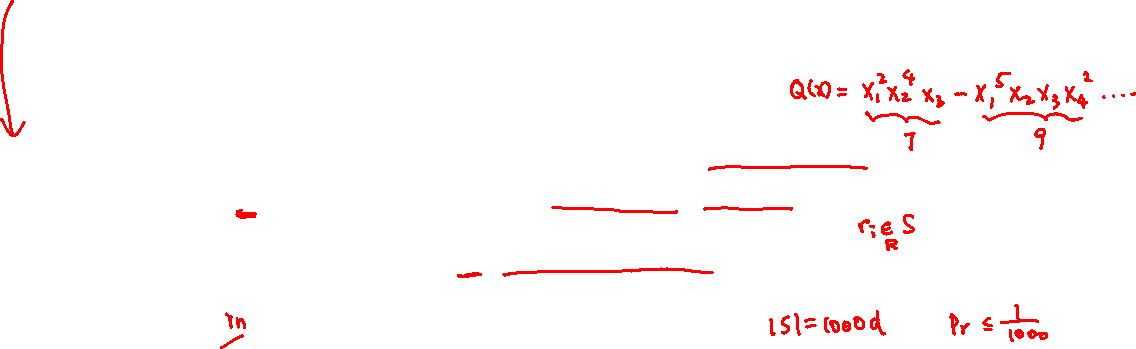 Q(x) = x₁²x₂⁴x₃ − x₁⁵x₂x₃x₄² ....
7 9
rᵢ ∈_R S
rn
|S| = 1000d Pr ≤ 1/1000